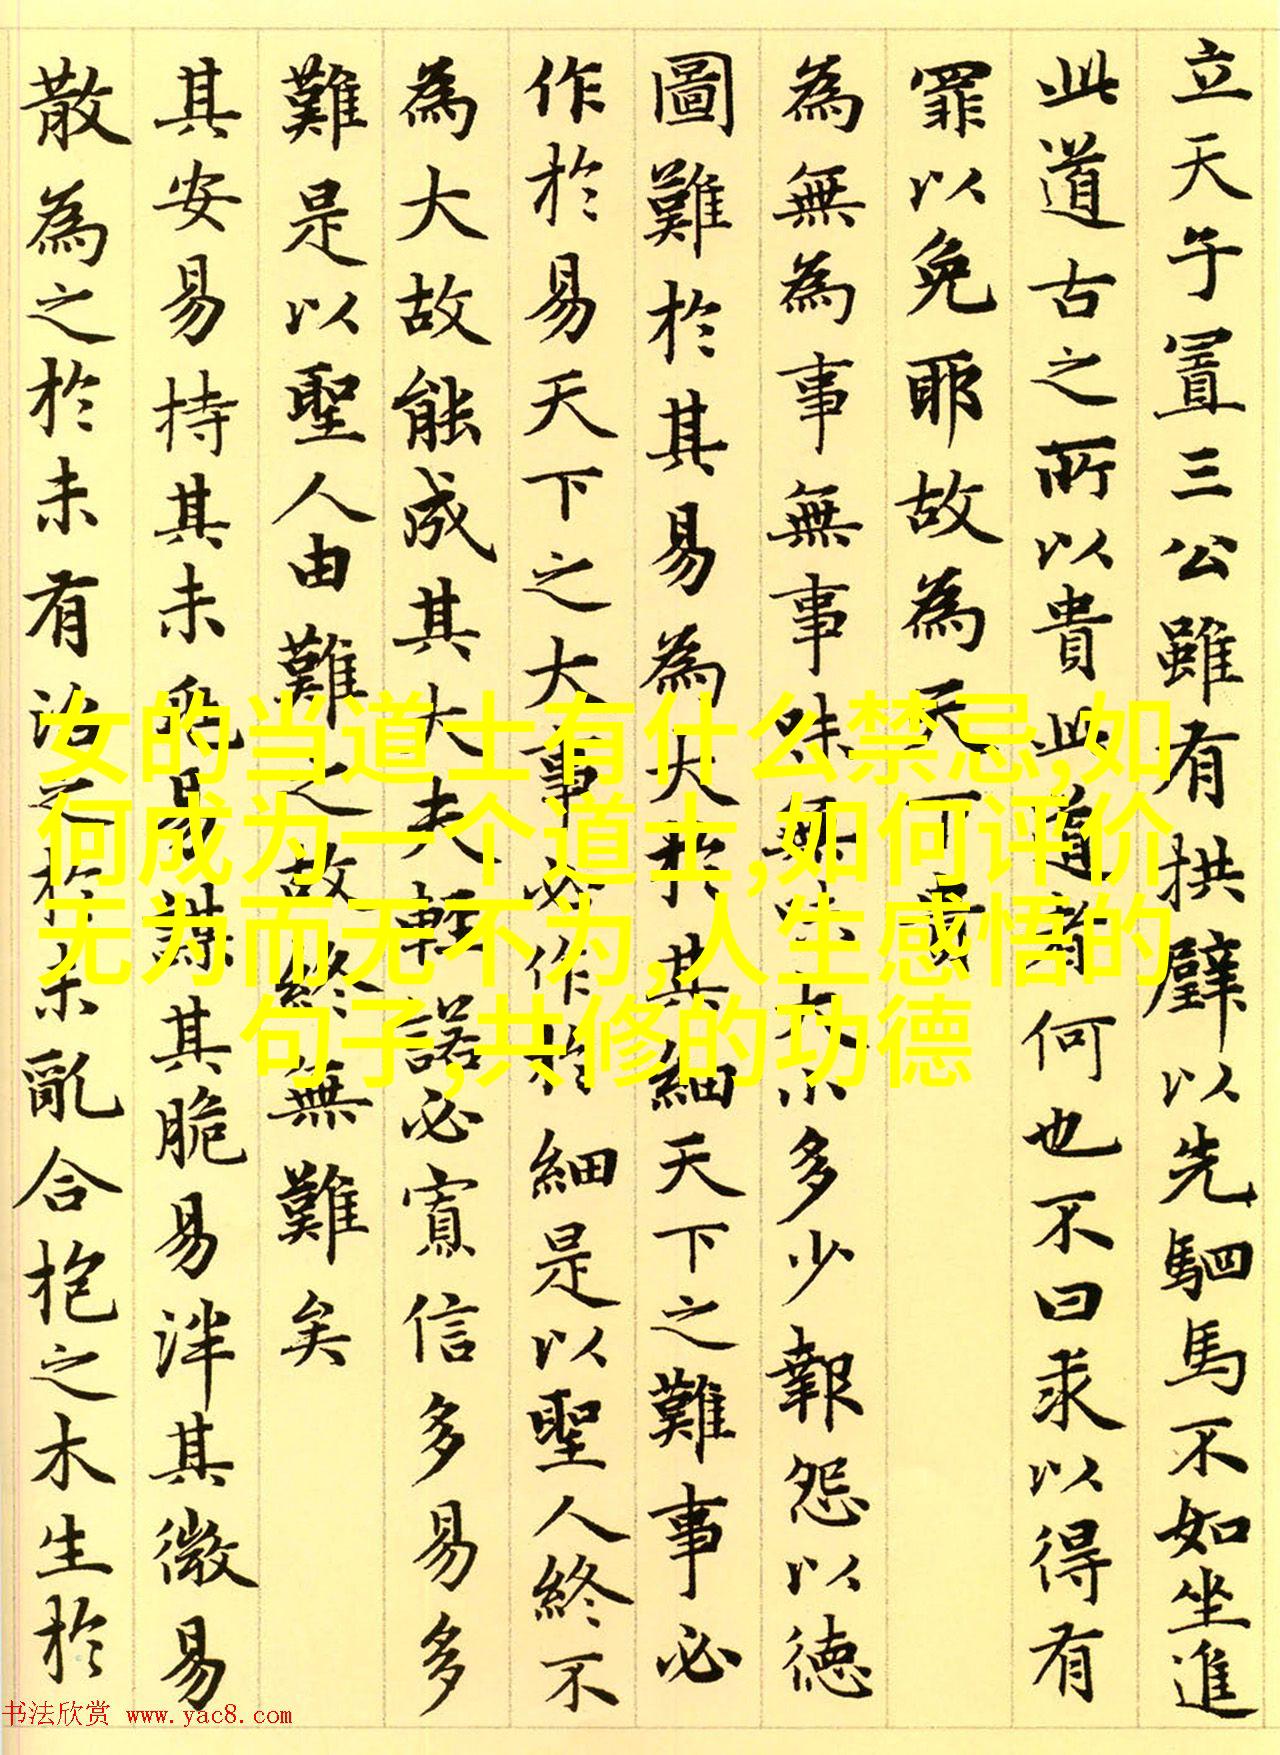 立天子置三公雖有拱璧以先駟馬不如坐進
此道古之所以貴此道者何也不曰求以得有
罪以免耶故為天下貴
為無為事無事味無味大小多少報怨以德
圖難於其易為大於其細天下之難事必
作於易天下之大事必作於細是以聖人終不
為大故能成其大夫輕諾必寡信多易多
難是以聖人由難之故終無難矣
其安易持其未亂易謀其脆易泮其微易
散為之於未有治之於未亂合抱之木生於
女的当道士有什么禁忌,如
何成为一个道士,如何评价
无为而无不为,人生感悟的
句子,共修的功德
书法欣赏 www.yac8.com